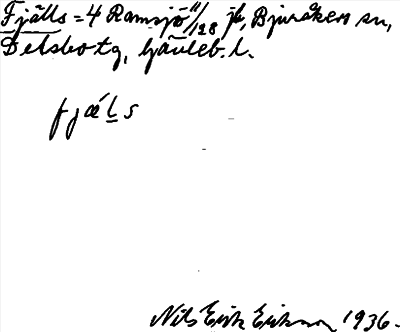 Fjälls = 4 Ramsjö 11/128 jb, Bjuråkers sn,
Delsbo tg, Gävleb. l.
fjæ´l̲s
Nils Erik Erikson 1936.